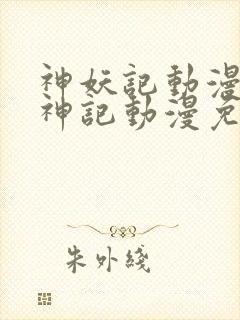 神妖記動漫
神記動漫免
朱外綫